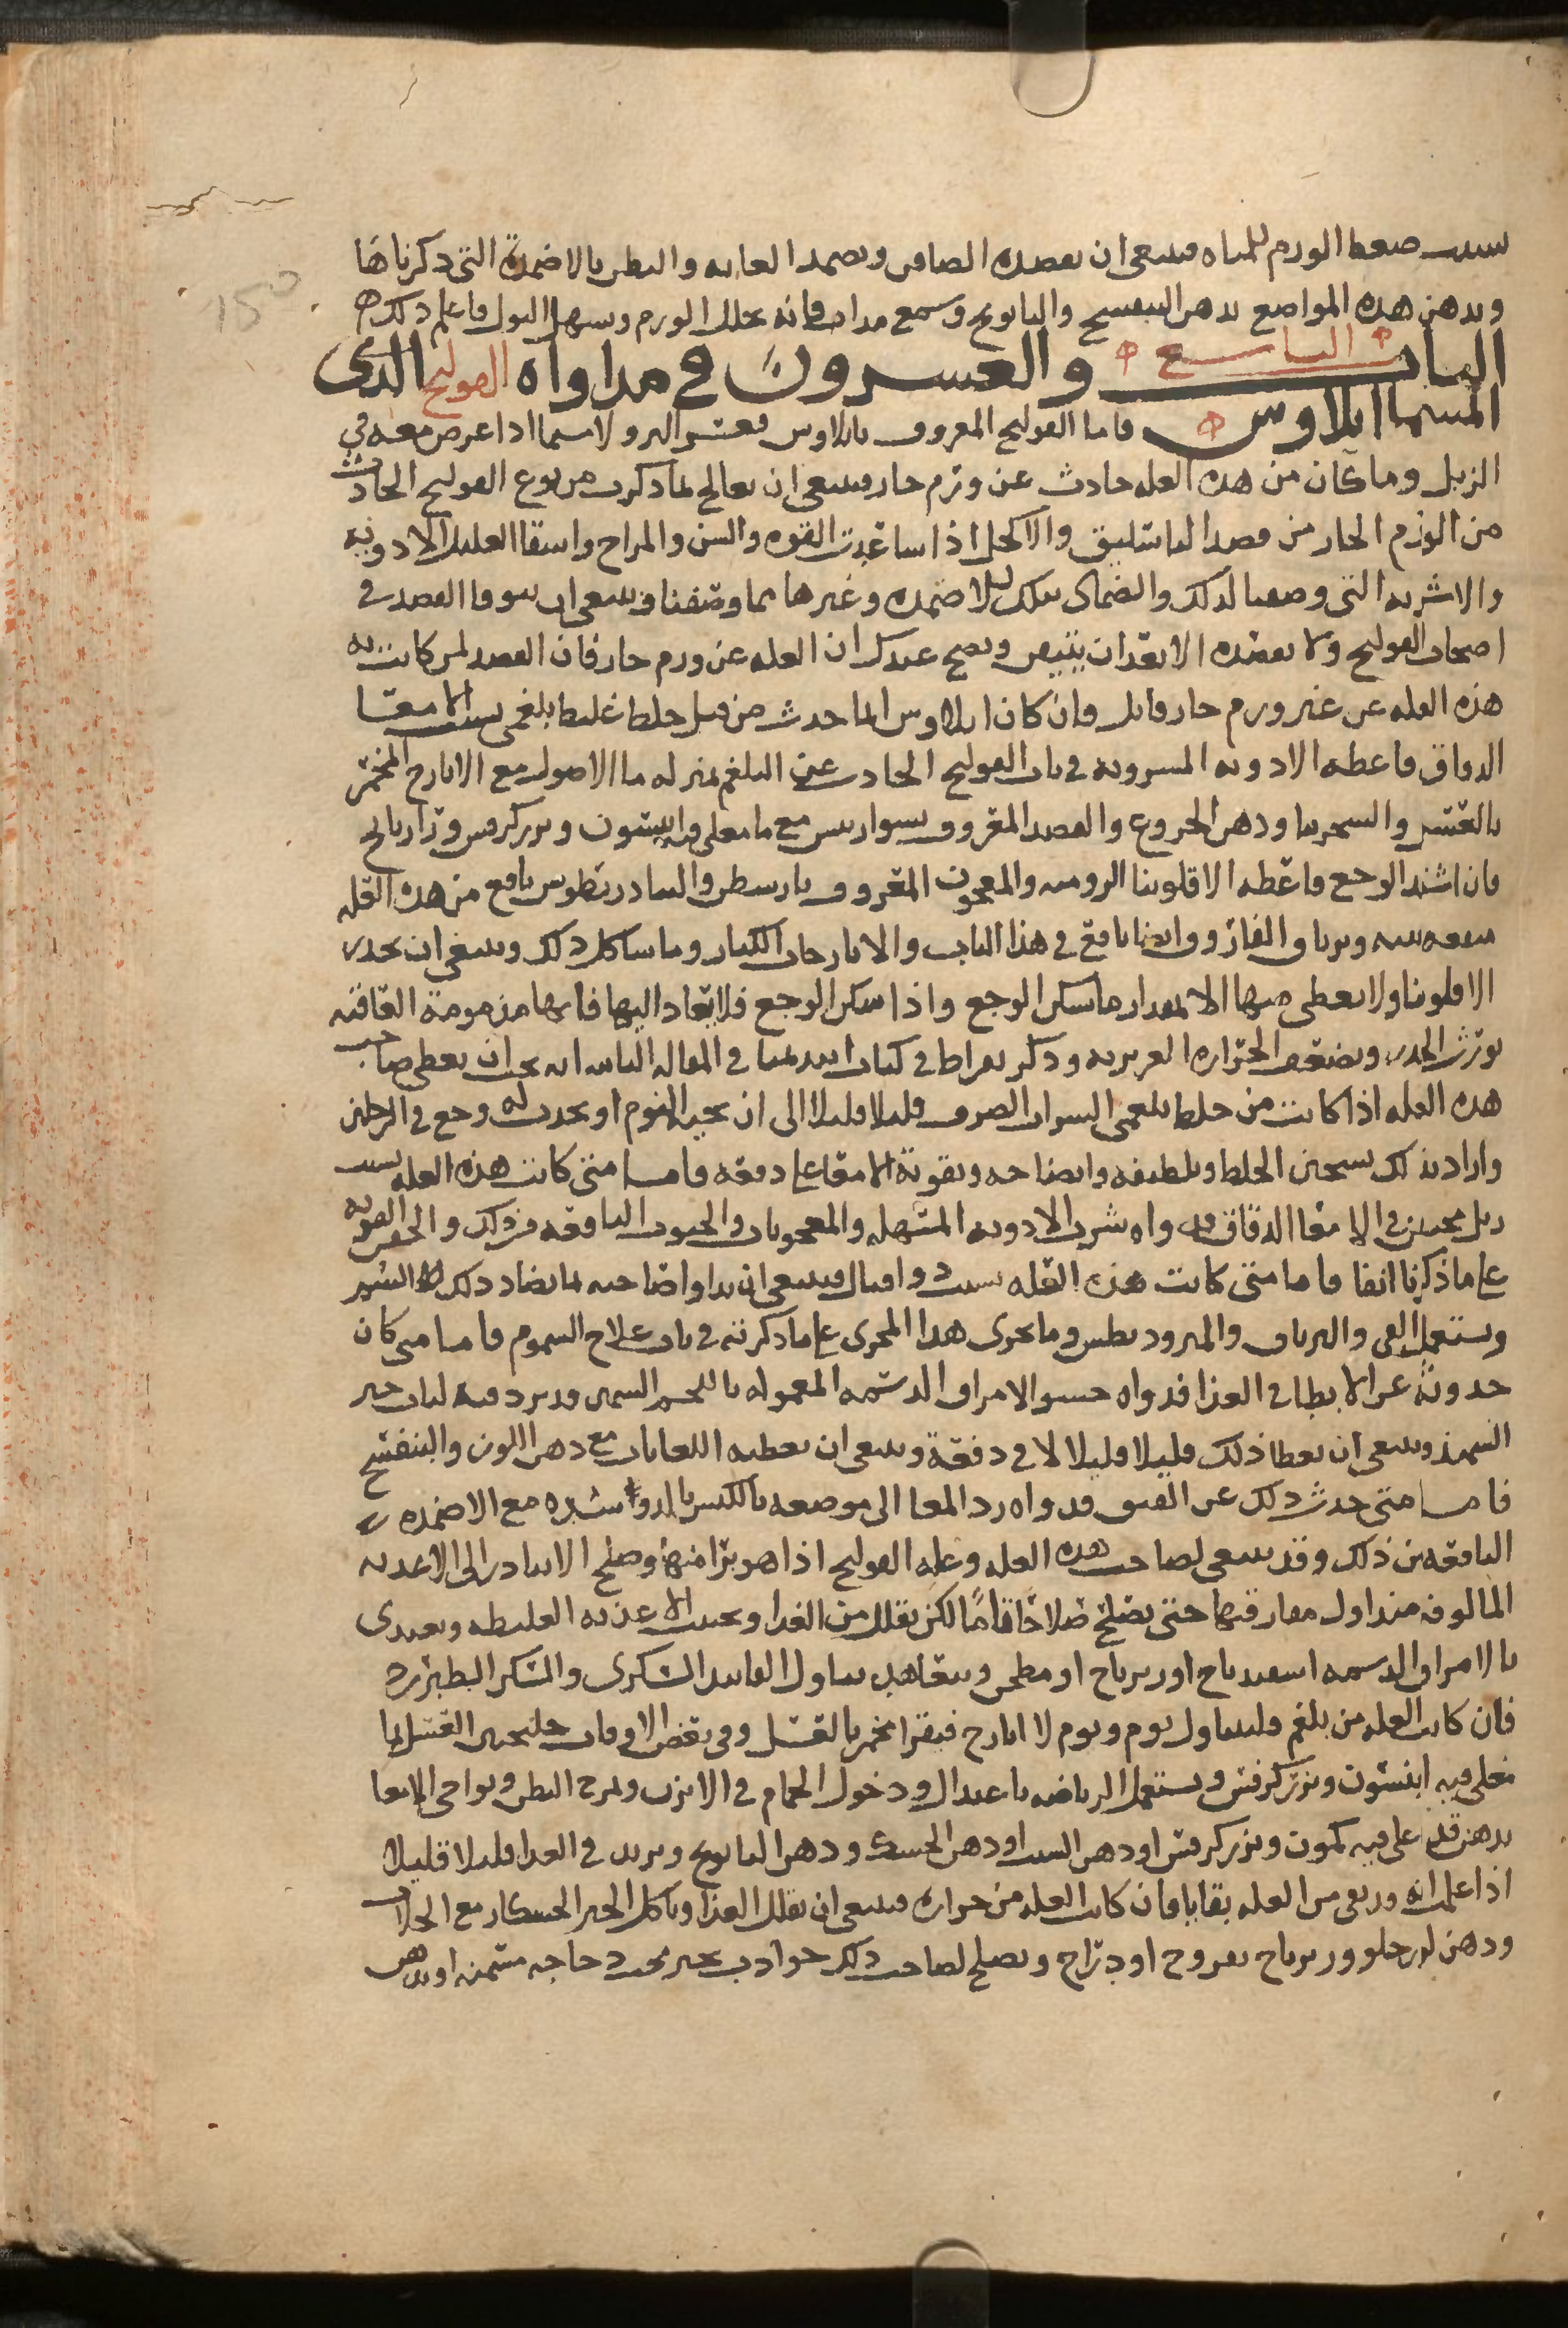 بسبب ضغط الورم للمثانه فينبغي ان يفصده الصافن ويضمد العانه والبطن بالاضمدة التي ذكرناها
ويدهن هذه المواضع بدهن البنفسج والبابونج وشمع مداف فانه يحلل الورم ويسهل البول فاعلم ذلك
الباب التاسع والعشرون في مداواه القولنج الذي
المسما ايلاوس فاما القولنج المعروف بايلاوس فعسر البرو لاسيما اذا عرض معه قي
الزبل وما كان من هذه العله حادث عن ورم حار فينبغي ان يعالج بما ذكرت من نوع القولنج الحادث
من الورم الحار من فصد الباسليق والاكحل اذا ساعدت القوه والسن والمزاج واسقا العليل الادويه
والاشربه التي وصفنا لذلك والضماد بتلك الاضمده وغيرها مما وصفنا وينبغي ان يتوقا الفصد في
اصحاب القولنج ولا يفصده الا بعد ان يتبين ويصح عندك ان العله عن ورم حار فان الفصد لمن كانت به
هذه العله عن غير ورم حار قاتل وان كان ايلاوس انما حدث من قبل خلط غليظ بلغمي الامعا
الدقاق فاعطه الادويه المسرويه في باب القولنج الحادث عن البلغم بمنزله ما الاصول مع الايارج المخمر
بالعسل والسجرينا ودهن الخروع المعروف مع ما مغلي فيه انيسون وبزر كرفس ورازيانج
فان اشتد الوجع فاعطه الافلونيا الروميه والمعجون المعروف بارسطن والسادريطوس نافع من هذه العله
منفعه بينه وترياق الفاروق ايضا نافع في هذا الباب والايارجات الكبار وما شاكل ذلك وينبغي ان يحذر
الافلونيا ولا يعطى منها الا بمقدار ما سكن الوجع واذا سكن الوجع فلا يعاد اليها فانها مذمومة العاقبه
تورث الخدر وتضعف الحراره الغريزيه وذكر بقراط في كتاب ابيديميا في المقاله الثانيه انه يجب ان يعطى صاحب
هذه العله اذا كانت من خلط بلغمي الشراب الصرف قليلا قليلا الى ان يجيه النوم او يحدث له وجع في الرجلين
واراد بذلك تسخين الخلط وتلطيفه وانضاجه وتقوية الامعا على دفعه فاما متى كانت هذه العله بسبب
زبل محتبس في الامعا الدقاق فدواه شرب الادويه المسهله والمعجونات والحبوب النافعه من ذلك والحقن القويه
على ما ذكرنا انفا فاما متى كانت هذه العله بسبب دوا قتال فينبغي ان يداوا صاحبه بما يضاد ذلك السم
ويستعمل القي والترياق والمثروديطوس وما يجري هذا المجرى على ما ذكرته في باب علاج السموم فاما متى كان
حدوثه عن الابطا في الغذا فدواه حسو الامراق الدسمه المعموله باللحم السمين وقد برد فيه لباب خبز
السميذ وينبغي ان يعطا ذلك قليلا قليلا لا في دفعة وينبغي ان يعطيه اللعابات مع دهن اللوز والبنفسج
فاما متى حدث ذلك عن الفتق فدواه رد المعا الى موضعه بالكبس بالرفق شده مع الاضمده
النافعه من ذلك وقد ينبغي لصاحب هذه العله وعله القولنج اذا هو برا منها وصلح الا يبادر الى الاغذيه
المالوفه منذ اول مفارقتها حتى يصلح صلاحا تاما لكن يقلل من الغذا ويجتنب الاغذيه الغليظه ويغتدي
بالامراق الدسمه اسفيدباج او زيرباج او مطجن ويتعاهد تناول الفانيد السكري والسكر الطبرزد
فان كانت العله من بلغم فليتناول يوم ويوم لا ايارج فيقرا مخمر بالعسل وفي بعض الاوقات جلنجبين العسل بما
مغلى فيه انيسون وبزر كرفس ويستعمل الرياضه باعتدال ودخول الحمام في الابزن ويمرخ البطن ونواحي الامعا
بدهن قد غلي فيه كمون وبزر كرفس او دهن السبت او دهن الحسك ودهن البابونج ويزيد في الغدا قليلا قليلا
اذا علم انه قد بقى من العله بقايا فان كانت العله من حراره فينبغي ان يقلل الغذا وياكل الخبز الخشكار مع الجلاب
ودهن لوز حلو وزيرباج بفروج او دراج ويصلح لصاحب ذلك جواذب بخبز تحت دجاجه مسمنه او بدهن